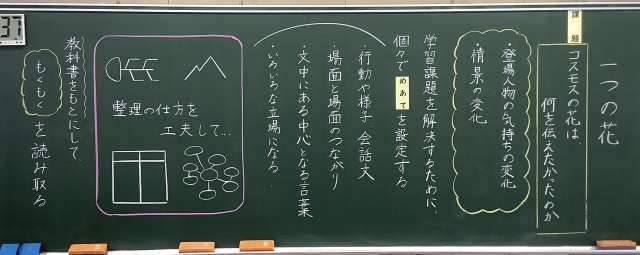 一つの花
課題
コスモスの花は、
何を伝えたかったのか
・登場人物の気持ちの変化
・情景の変化
学習課題を解決するために、
個々でめあてを設定する
・行動や様子、会話文
・場面と場面のつながり
・文中にある中心となる言葉
・いろいろな立場になる
整理の仕方を
工夫して…
教科書をもとにして、
もくもくを読み取る
37